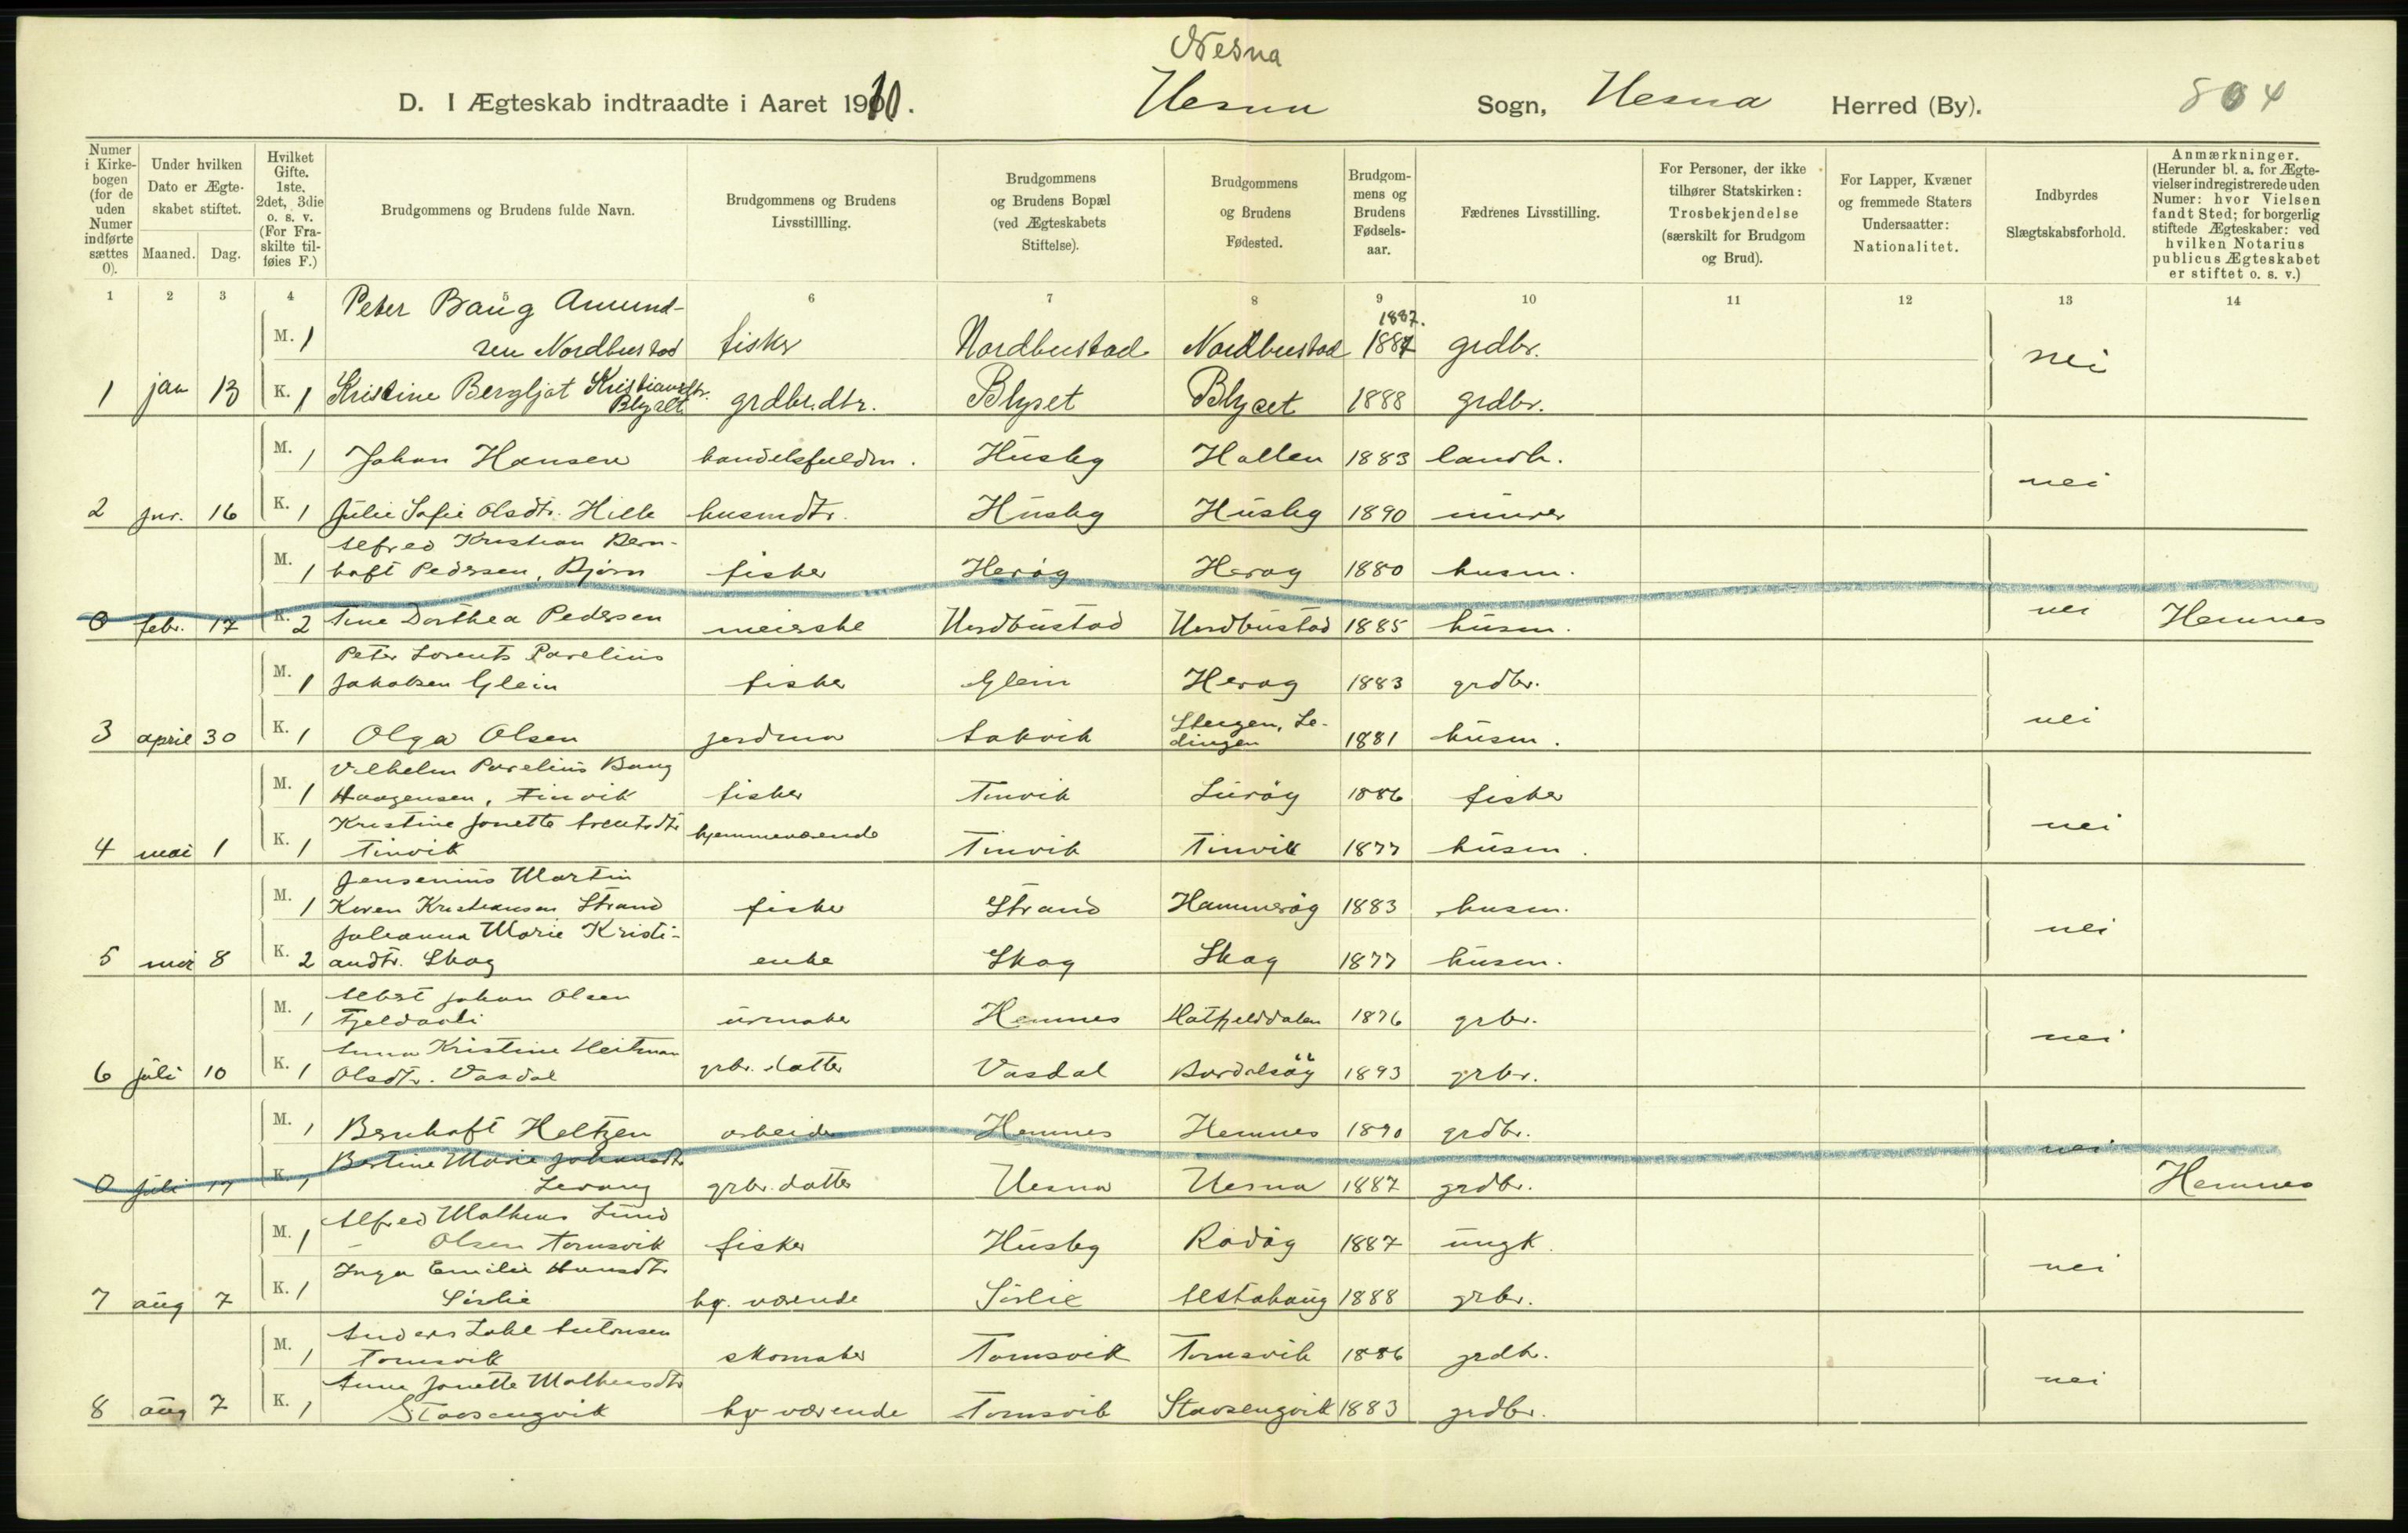 Nesna
D. I Ægteskab indtraadte i Aaret 1910. Nesna Sogn, Nesna Herred (By). 804
Numer i Kirke-bogen (for de uden Numer indførte sættes 0). Under hvilken Dato er Ægte-skabet stiftet. Maaned. Dag. Hvilket Gifte. 1ste. 2det, 3die o. s. v. (For Fra-skilte til-føies F.) Brudgommens og Brudens fulde Navn. Brudgommens og Brudens Livsstillling. Brudgommens og Brudens Bopæl (ved Ægteskabets Stiftelse). Brudgommens og Brudens Fødested. Brudgom-mens og Brudens Fødsels-aar. Fædrenes Livsstilling. For Personer, der ikke tilhører Statskirken: Trosbekjendelse (særskilt for Brudgom og Brud). For Lapper, Kvæner og fremmede Staters Undersaatter: Nationalitet. Indbyrdes Slægtskabsforhold. Anmærkninger. (Herunder bl. a. for Ægte-vielser indregistrerede uden Numer: hvor Vielsen fandt Sted; for borgerlig stiftede Ægteskaber: ved hvilken Notarius publicus Ægteskabet er stiftet o. s. v.)
1 2 3 4 5 6 7 8 9 10 11 12 13 14
Peter Baug Amund-
1887.
M. 1 sen Nordbustad fisker Nordbustad Nordbustad 1887 grdbr.
nei
1 jan 13 K. 1 Kristine Bergljot Kristiansdtr. Blyset grdbr.dtr. Blyset Blyset 1888 grdbr.
M. 1 Johan Hansen handelsfuldm. Husby Hallen 1883 landh.
nei
2 jnr. 16 K. 1 Julie Sofie Olsdtr. Hille husmdtr. Husby Husby 1890 murer
Alfred Kristian Bern-
M. 1 hoft Pedersen, Bjørn fisker Herøy Herøy 1880 husm.
0 febr. 17 K. 2 Tine Dorthea Pedersen meierske Nordbustad Nordbustad 1885 husm. nei Hemnes
Peter Lorents Parelius
M. 1 Jakobsen Glein fisker Glein Herøy 1883 grdbr.
nei
3 april 30 K. 1 Olga Olsen jordmor Steigen, Lø-
dingen 1881 husm.
Vilhelm Parelius Bang
M. 1 Haagensen, Tinvik fisker Tinvik Lurøy 1886 fisker
Kristine Jonette
nei
4 mai 1 K. 1 Tinvik hjemmeværende Tinvik Tinvik 1877 husm.
Jensenius Martin
M. 1 Kristiansen Strand fisker Strand Hammerøy 1883 husm.
Johanna Marie Kristi-
nei
5 mai 8 K. 2 andtr. Skog enke Skog Skog 1877 husm.
Albert Johan Olsen
M. 1 Fjeldavli urmaker Hemnes Hatfjelddalen 1876 grbr.
Anna Kristine Heitman
nei
6 juli 10 K. 1 Olsdtr. Vasdal grbr. datter Vasdal 1893 grbr.
M. 1 Bernhoft Heltzen arbeider Hemnes Hemnes 1890 grdbr.
Bertine Marie Johansdtr
nei
0 juli 17 K. 1 Levang grbr. datter Nesna Nesna 1887 grdbr. Hemnes
Alfred Matheus Lund
M. 1 Olsen Tomsvik fisker Husby Rødøy 1887 ungk.
Inga Emilie Hansdtr
nei
7 aug 7 K. 1 Sørlie hj. værende Sørlie Alstahaug 1888 grbr.
Anders Antonsen
M. 1 Tomsvik skomaker Tomsvik Tomsvik 1886 grdb.
Anne Jonette Matheusdtr
nei
8 aug 7 K. 1 Stavsengvik hj. værende Tomsvik Stavsengvik 1883 grdbr.